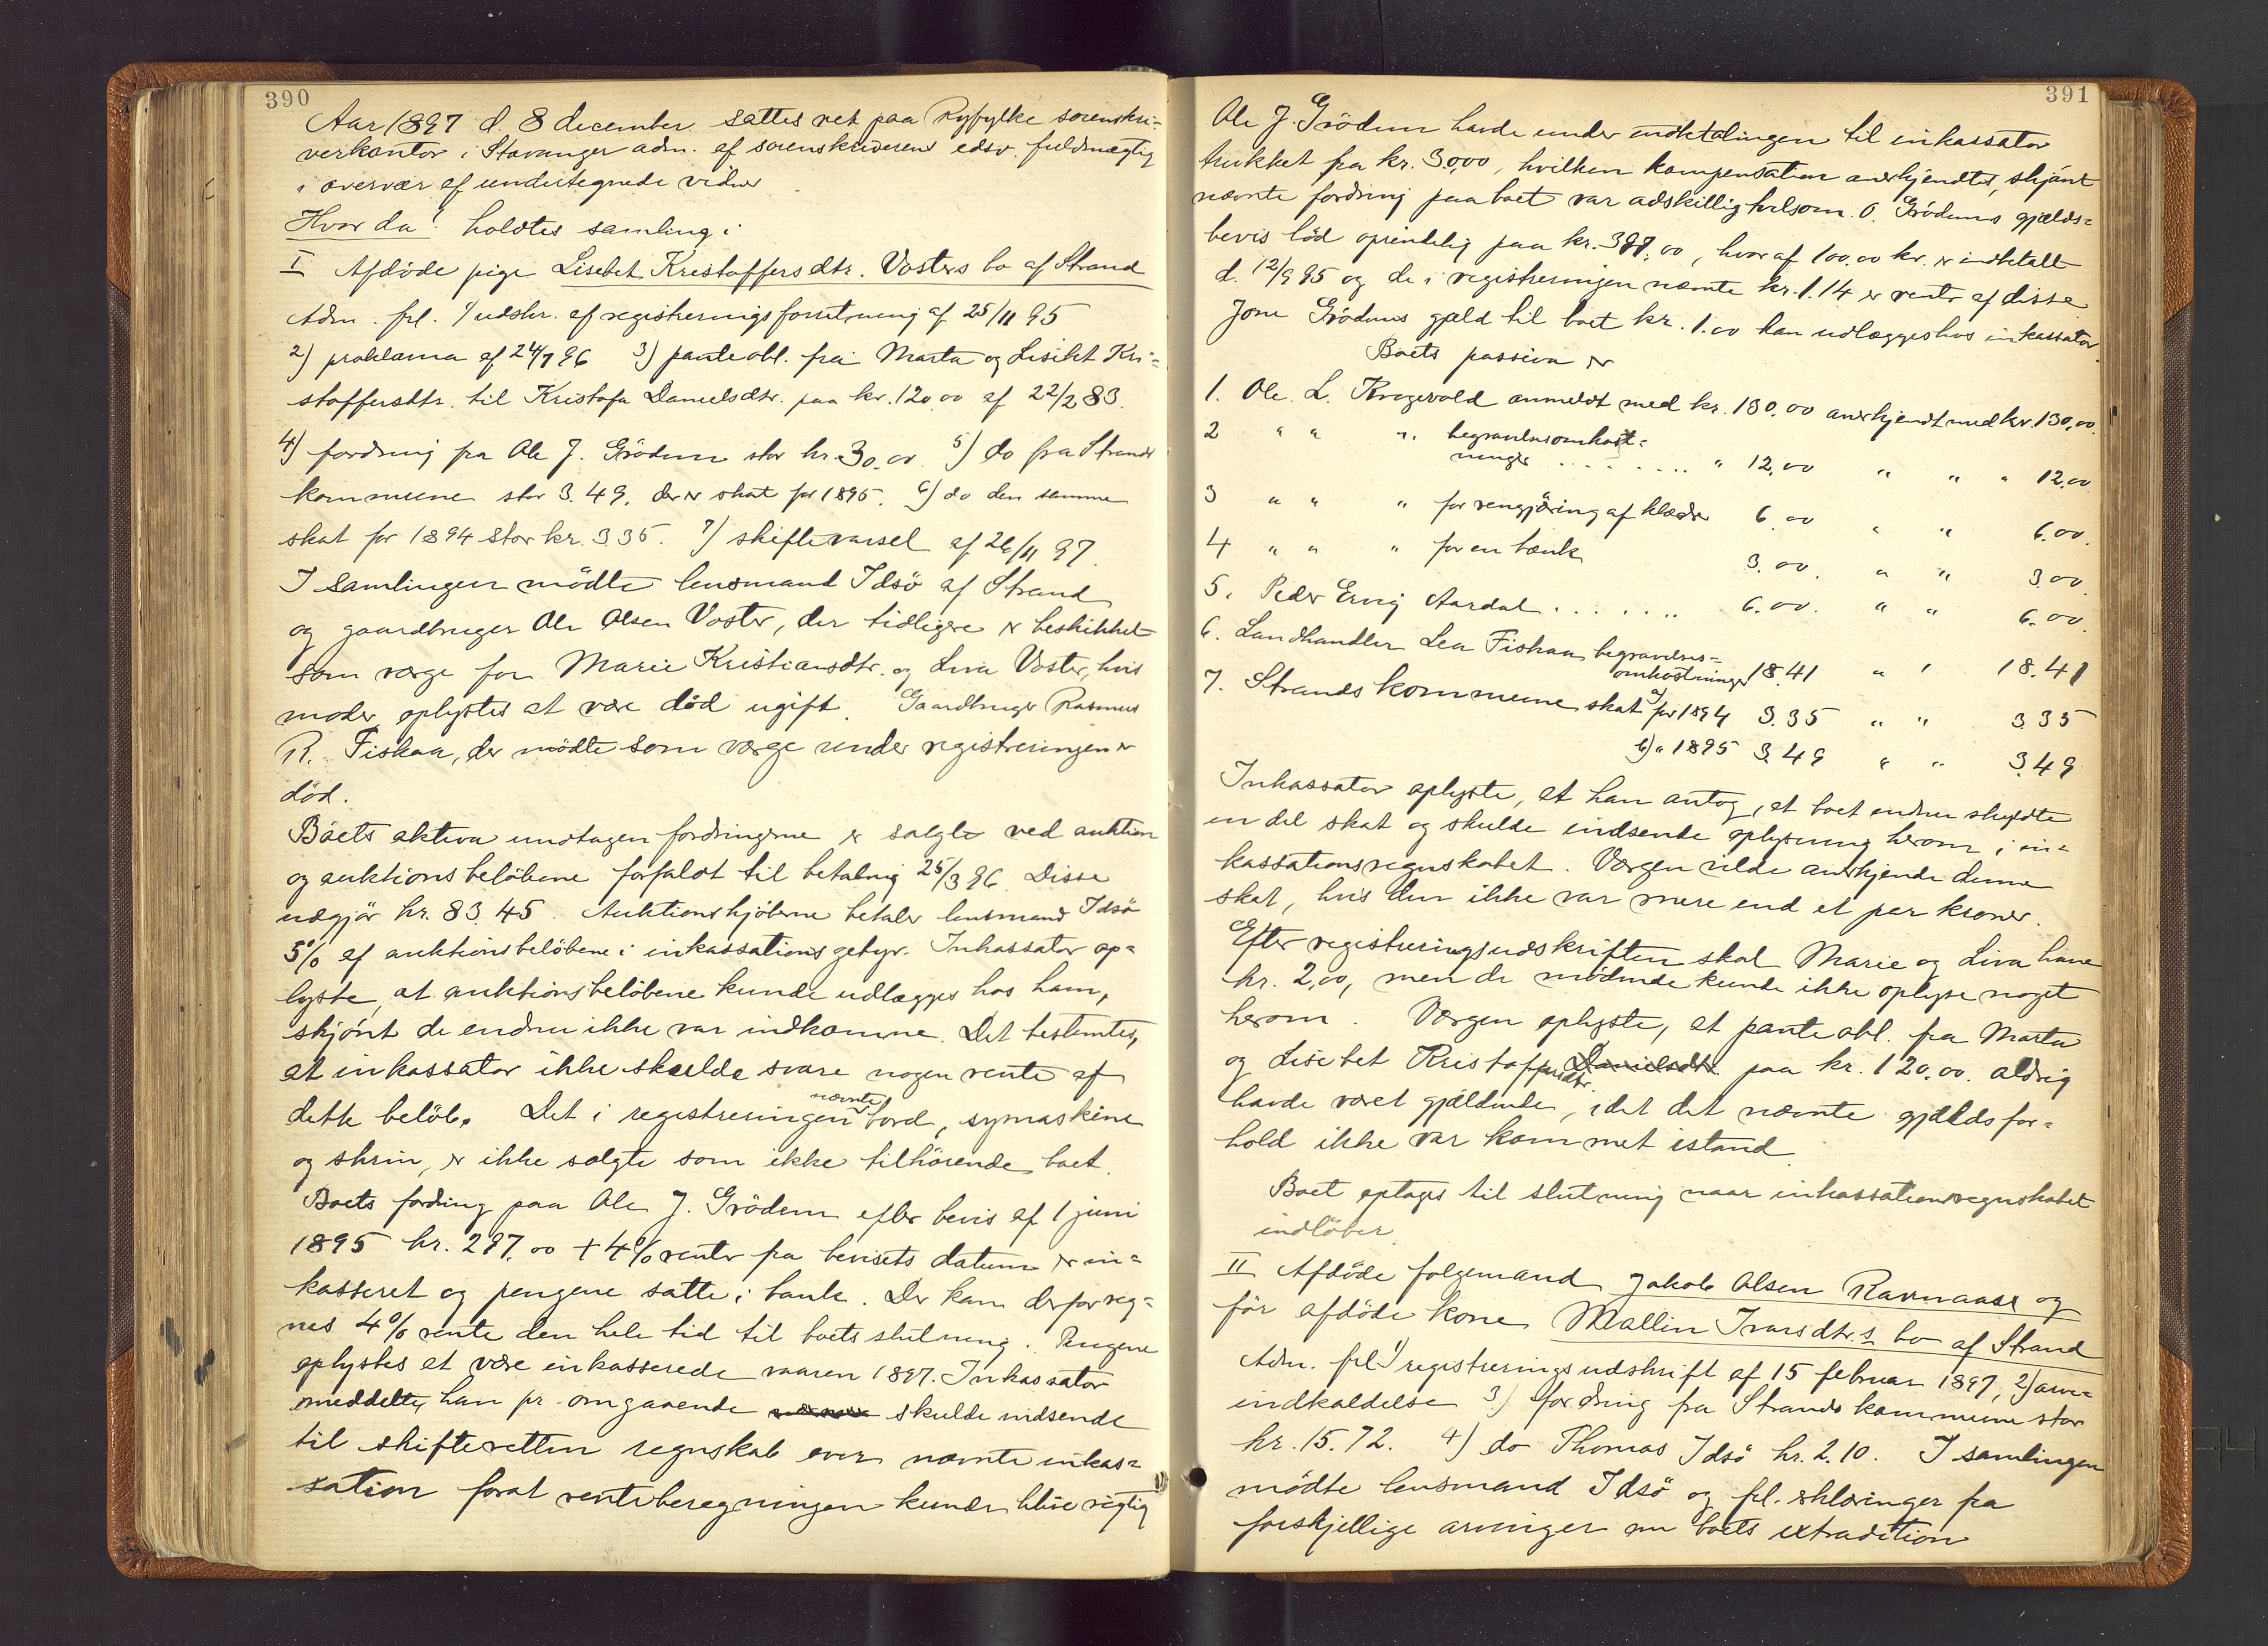 390
Aar 1897 d. 8 december sattes ret paa Ryfylke sorenskri-
verkontor i Stavanger adm. af sorenskriverens edsv. fuldmægtig
i overvær af undertegnede vidner
Hvor da! holdtes samling i
I Afdöde pige Lisebet Kristoffersdtr. Vosters bo af Strand
Adm. frl. 1/ udskr. af registreringsforretning af 25/11 95
2) proklama af 24/7 96 3) panteobl. fra Marta og Lisibet Kri-
stoffersdtr. til Kristofa Danielsdtr. paa kr. 120.00 af 22/2 83.
4) fordring fra Ole J. Grödem stor kr. 30.00. 5) do fra Strands
kommune stor 3.49. der er skat for 1895. 6) do den samme
skat for 1894 stor kr. 3.35. 7) skiftevarsel af 26/11 97.
I samlingen mödte lensmand Idsö af Strand
og gaardbruger Ole Olsen Voster, der tidligere er beskikket
som værge for Marie Kristiansdtr. og Liva Voster, hvis
moder oplystes at være död ugift. Gaardbruger Rasmus
R. Fiskaa, der mödte som værge under registreringen er
död.
Boets aktiva undtagen fordringerne er solgte ved auktion
og auktionsbelöbene forfaldt til betaling 25/3 96. Disse
udgjör kr. 83.45. Auktionskjöberne betaler lensmand Idsö
5% af auktionsbelöbene i inkassationsgebyr. Inkassator op-
lyste, at auktionsbelöbene kunde udlægges hos ham,
skjönt de endnu ikke var indkomne. Det bestemtes,
at inkassator ikke skulde svare nogen rente af
dette belöb. Det i registreringen nævnte bord, symaskine
og skrin, er ikke solgte som ikke tilhörende boet.
Boets fordring paa Ole J. Grödem efter bevis af 1 juni
1895 kr. 287.00 + 4% renter fra bevisets datum er in-
kasseret og pengene satte i bank. Der kan derfor reg-
nes 4% rente den hele tid til boets slutning. Pengene
oplystes at være inkasserede vaaren 1897. Inkassator
meddelte, han pr. omgaaende skulde indsende
til skifteretten regnskab over nævnte inkas-
sation forat renteberegningen kunde blive rigtig
391
Ole J. Grödem havde under indbetalingen til inkassator
trukket fra kr. 30,00, hvilken kompensation anerkjendtes, skjönt
nævnte fordring paa boet var adskillig tvilsom. O. Grödems gjelds-
bevis löd oprindelig paa kr. 387.00, hvoraf 100.00 kr. er indbetalt
d. 12/9 95 og de i registreringen nævnte kr. 1.14 er rente af disse
Jone Grödems gjæld til boet kr. 1.00 kan udlægges hos inkassator.
Boets passiva er
1. Ole L. Krogevold anmeldt med kr. 130.00 anerkjendt med kr. 130.00.
2 " " " begravelsesomkost-
ninger ........ " 12.00 " " " 12.00
3 " " " for rengjöring af klæder 6.00 " " 6.00.
4 " " " for en bænk 3.00. " " 3.00
5. Peder Ervig Aardal ....... 6.00. " " 6.00.
6. Landhandler Lea Fiskaa begravelses-
omkostninger 18.41 " " 18.41
7. Strands kommune skat a) for 1894 3.35 " " 3.35
b) " 1895 3.49 " " 3.49
Inkassator oplyste, at han antog, at boet endnu skyldte
en del skat og skulde indsende oplysning herom i in-
kassationsregnskabet. Værgen vilde anerkjende denne
skat, hvis den ikke var mere end et par kroner.
Efter registreringsudskriften skal Marie og Liva have
kr. 2,00, men de mödende kunde ikke oplyse noget
herom. Værgen oplyste, at panteobl. fra Marta
og Lisebet Kristoffersdtr. Danielsdtr. paa kr. 120.00. aldrig
havde været gjældende, idet det nævnte gjældsfor-
hold ikke var kommet istand
Boet optages til slutning naar inkassationsregnskabet
indlöber.
II Afdöde folgemand Jakob Olsen Ravnaase og
för afdöde kone Mallin Ivarsdtr.s bo af Strand
Adm. frl. 1) registreringsudskrift af 15 februar 1897, 2) arve-
indkaldelse 3) fordring fra Strands kommune stor
kr. 15.72. 4) do Thomas Idsö kr. 2.10. I samlingen
mödte lensmand Idsö og frl. erklæringer fra
forskjellige arvinger om boets extradition